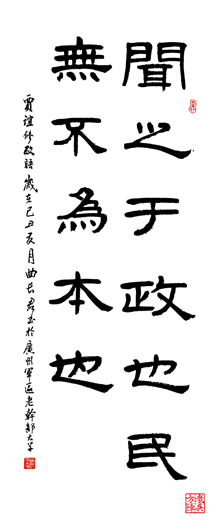 聞之于政也民
無不為本也
賈誼修政語歲在己丑亥月曲長君書於廣州軍區老幹部大學